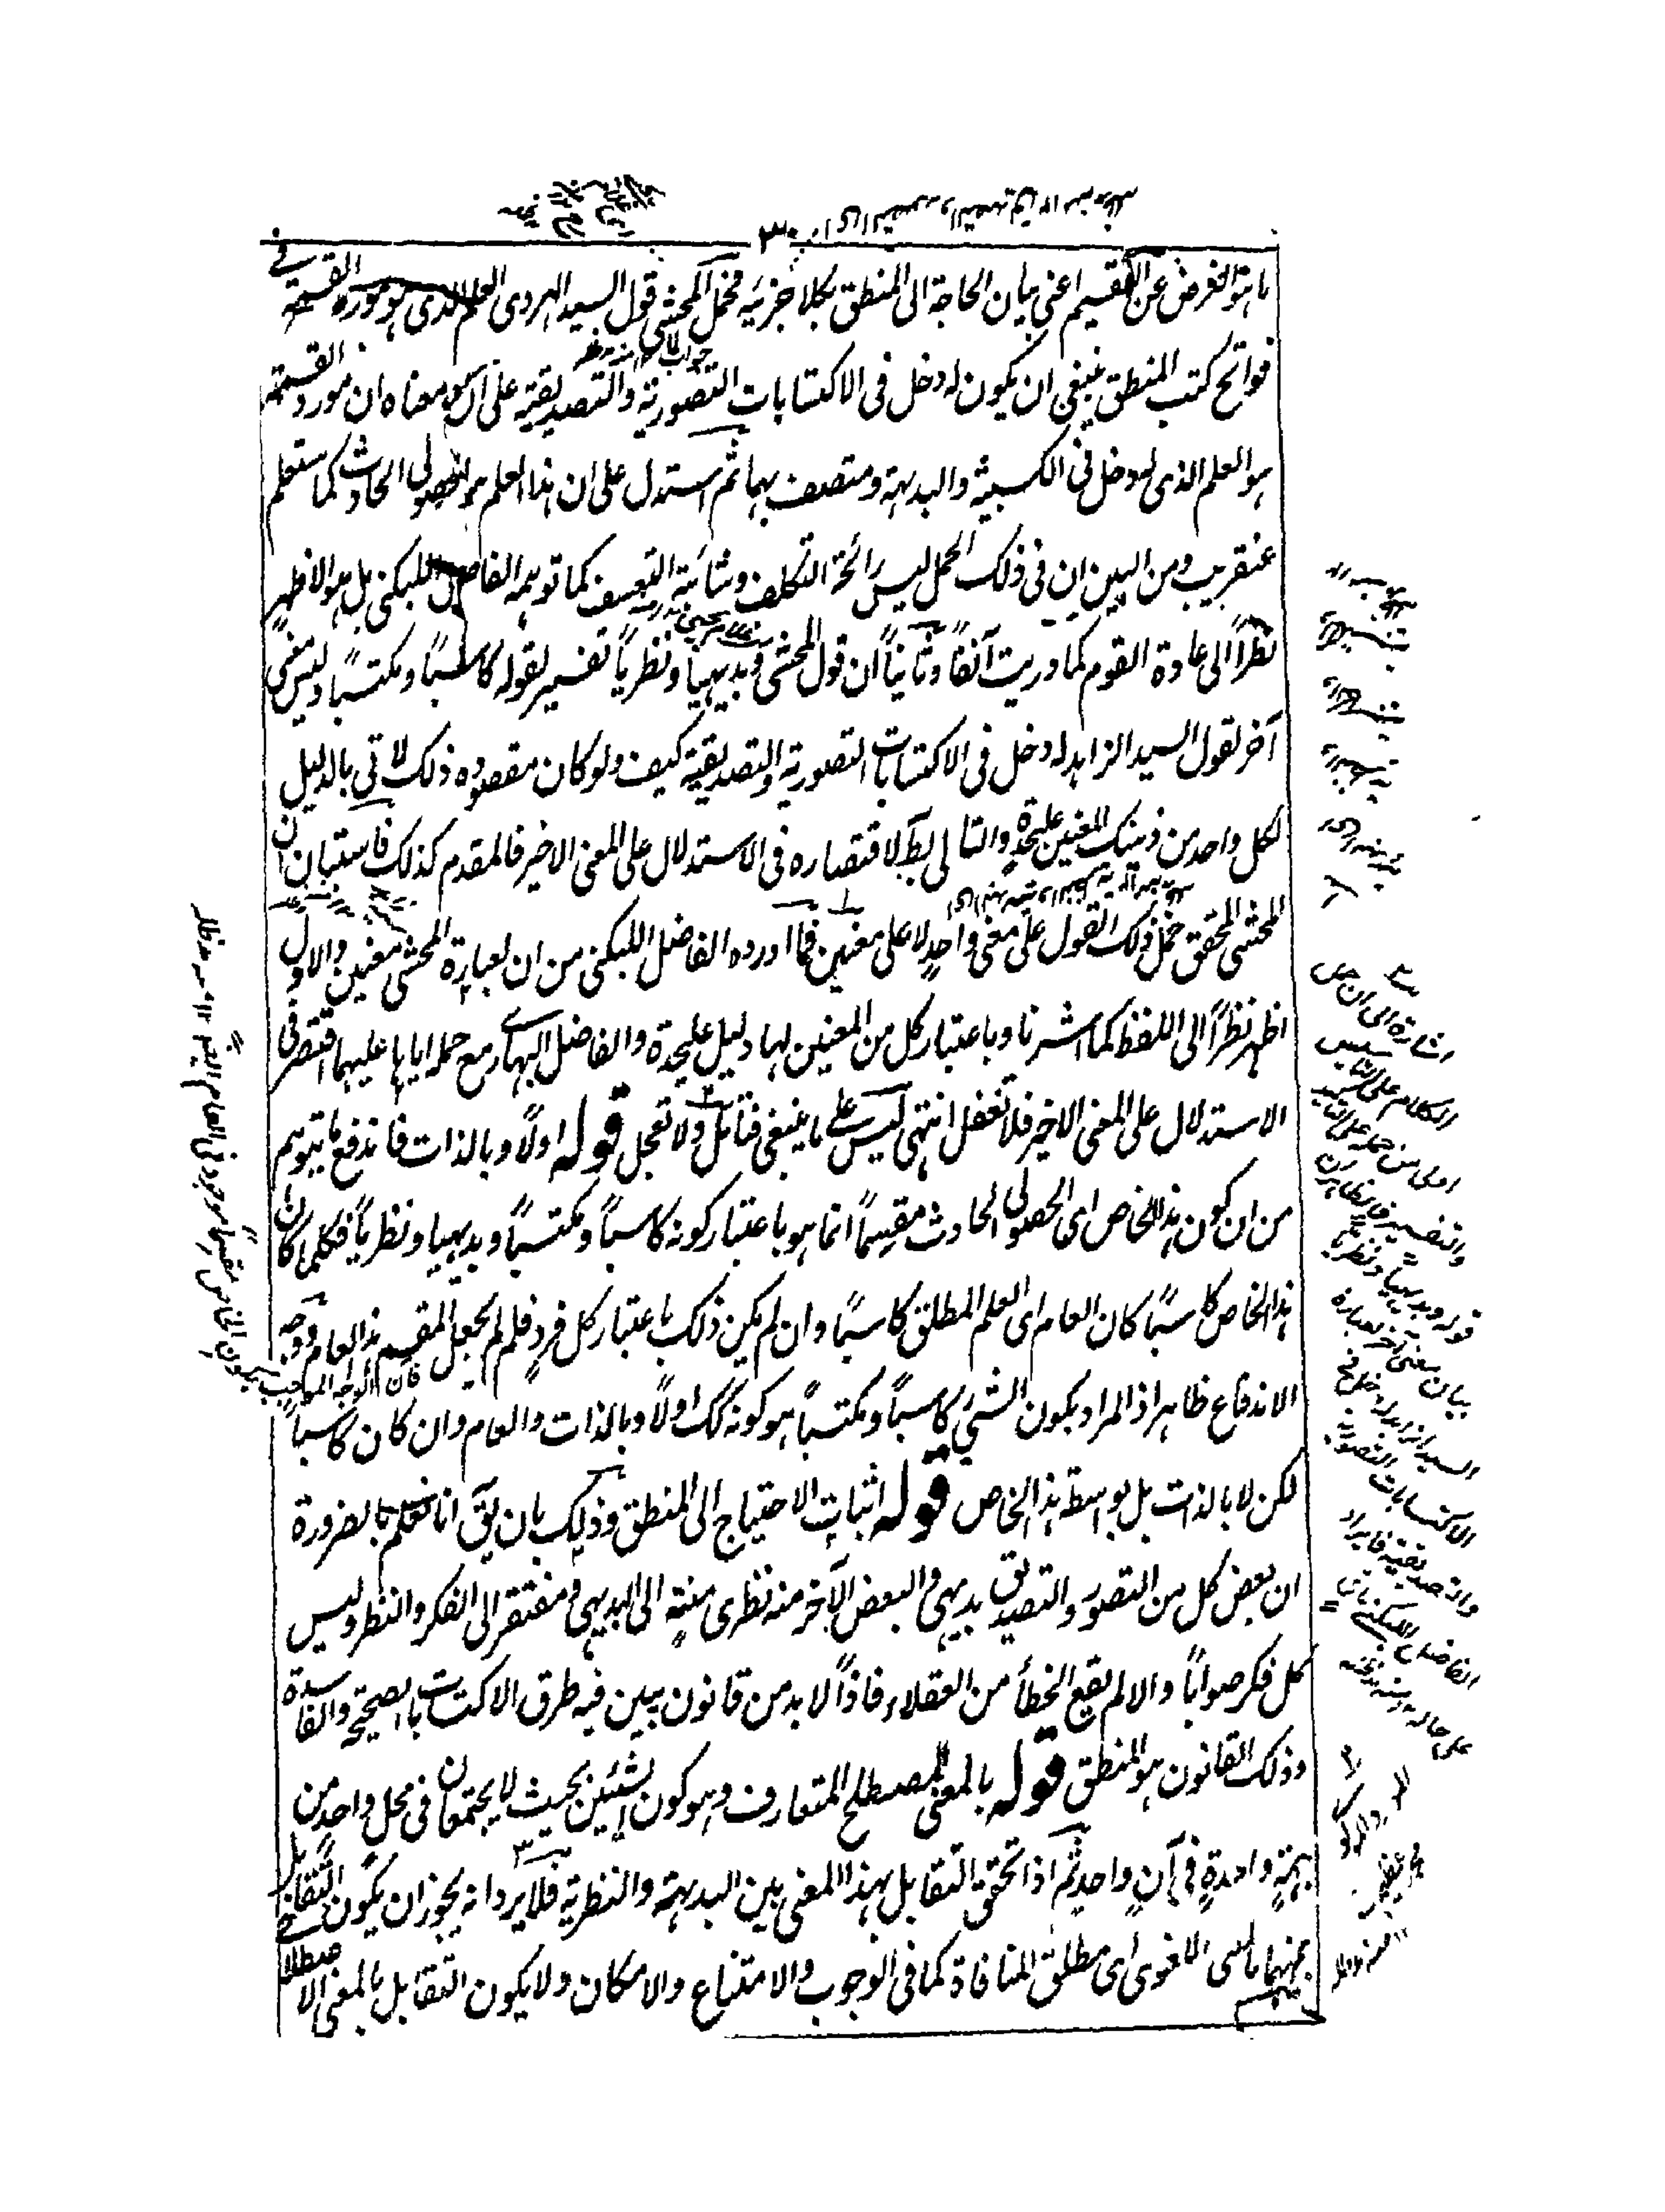 ما هو الغرض عن التقسيم اعنى بيان الحاجة الى المنطق بكلا جزئيه فحمل المحشى قول السيد الهروى العلم الذى هو مورد القسمة فى
فواتح كتب المنطق ينبغى ان يكون له دخل فى الاكتسابات التصورية والتصديقية على ان معناه ان مورد القسمة
هو العلم الذى له دخل فى الكسبية والبديهة ومتصف بهما ثم استدل على ان هذا العلم هو الحصولى الحادث كما ستعلم
عنقريب ومن البين ان فى ذلك الحمل ليس رائحة التكلف وشائبة التعسف كما توهمه الفاضل اللبكنى بل هو الاظهر
نظراً الى عادة القوم كما دريت آنفاً وثانياً ان قول المحشى وبديهياً ونظرياً تفسير لقوله كاسباً ومكتسباً وليس معنى
آخر لقول السيد الزاهد له دخل فى الاكتسابات التصورية والتصديقية كيف ولو كان مقصوده ذلك لاتى بالدليل
لكل واحد من ذينك المعنيين عليحدة والتالى بط لاقتصاره فى الاستدلال على المعنى الاخير فالمقدم كذلك فاستبان ان
المحشى المحقق حمل ذلك القول على معنى واحد لا على معنيين فما اورده الفاضل اللبكنى من ان لعبارة المحشى معنيين والاول
اظهر نظراً الى اللفظ كما اشرنا وباعتبار كل من المعنيين لها دليل عليحدة والفاضل البهارى مع حمله اياها عليهما اقتصر فى
الاستدلال على المعنى الاخير فلا تغفل انتهى ليس على ما ينبغى فتأمل ولا تعجل قوله اولاً وبالذات فاندفع ما يتوهم
من ان كون هذا الخاص اى الحصولى الحادث مقسماً انما هو باعتبار كونه كاسباً ومكتسباً وبديهيا ونظرياً فكلما كان
هذا الخاص كاسباً كان العام اى العلم المطلق كاسباً وان لم يكن ذلك باعتبار كل فرد فلم لم يجعل المقسم هذا العام ووجه
الاندفاع ظاهر اذ المراد بكون الشئ كاسباً ومكتسباً هو كونه كك اولاً وبالذات والعام وان كان كاسباً
لكن لا بالذات بل بواسطة هذا الخاص قوله اثبات الاحتياج الى المنطق وذلك بان يق انا نعلم بالضرورة
ان بعض كل من التصور والتصديق بديهى والبعض الآخر منه نظرى منته الى البديهى ومفتقر الى الفكر والنظر وليس
كل فكر صواباً والا لم يقع الخطأ من العقلاء فاذاً لا بد من قانون يبين فيه طرق الاكتسابات الصحيحة والفاسدة
وذلك القانون هو المنطق قوله بالمعنى المصطلح المتعارف وهو كون الشيئين بحيث لا يجتمعان فى محل واحد من
جهة واحدة فى آن واحد ثم اذا تحقق التقابل بهذا المعنى بين البديهة والنظرية فلا يرد انه يجوز ان يكون التقابل
بينهما بالمعنى اللغوى اى مطلق المنافاة كما فى الوجوب والامتناع والامكان ولا يكون التقابل بالمعنى الاصطلا
اشارة الى ان
الكلام على التاسيس
اولى من حمله على التاكيد
والتفسير فالظاهر ان
قوله وبديهياً ونظرياً
بيان معنى آخر لعبارة
السيد الزاهد له دخل فى
الاكتسابات التصورية
والتصديقية فايراد
الفاضل اللبكنى باق
على حاله